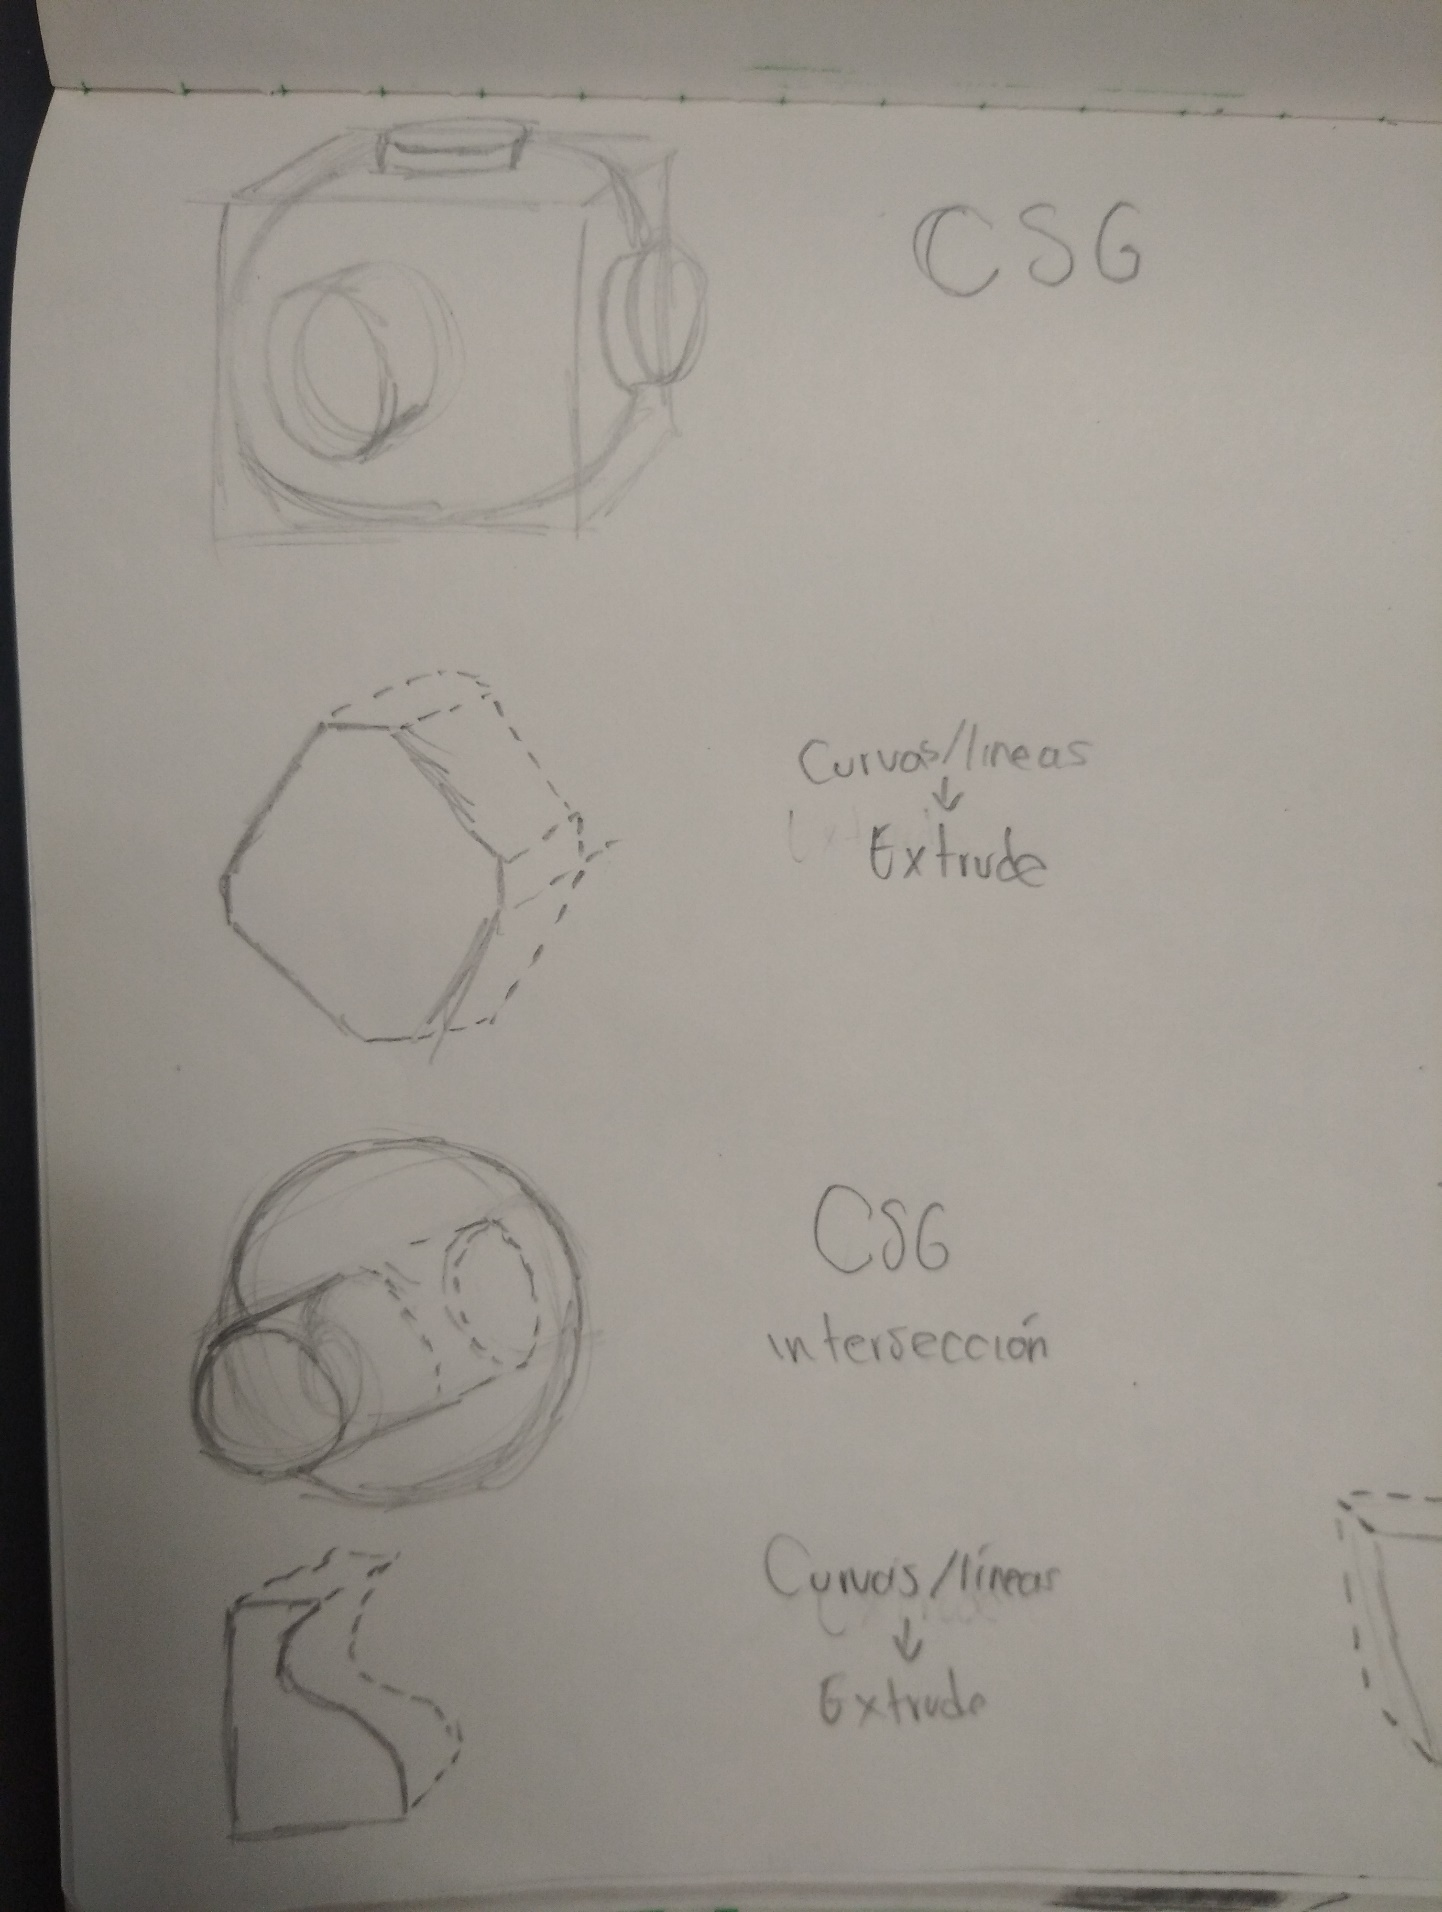 CSG
Curvas/lineas
↓
Extrude
CSG
intersección
Curvas/líneas
↓
Extrude